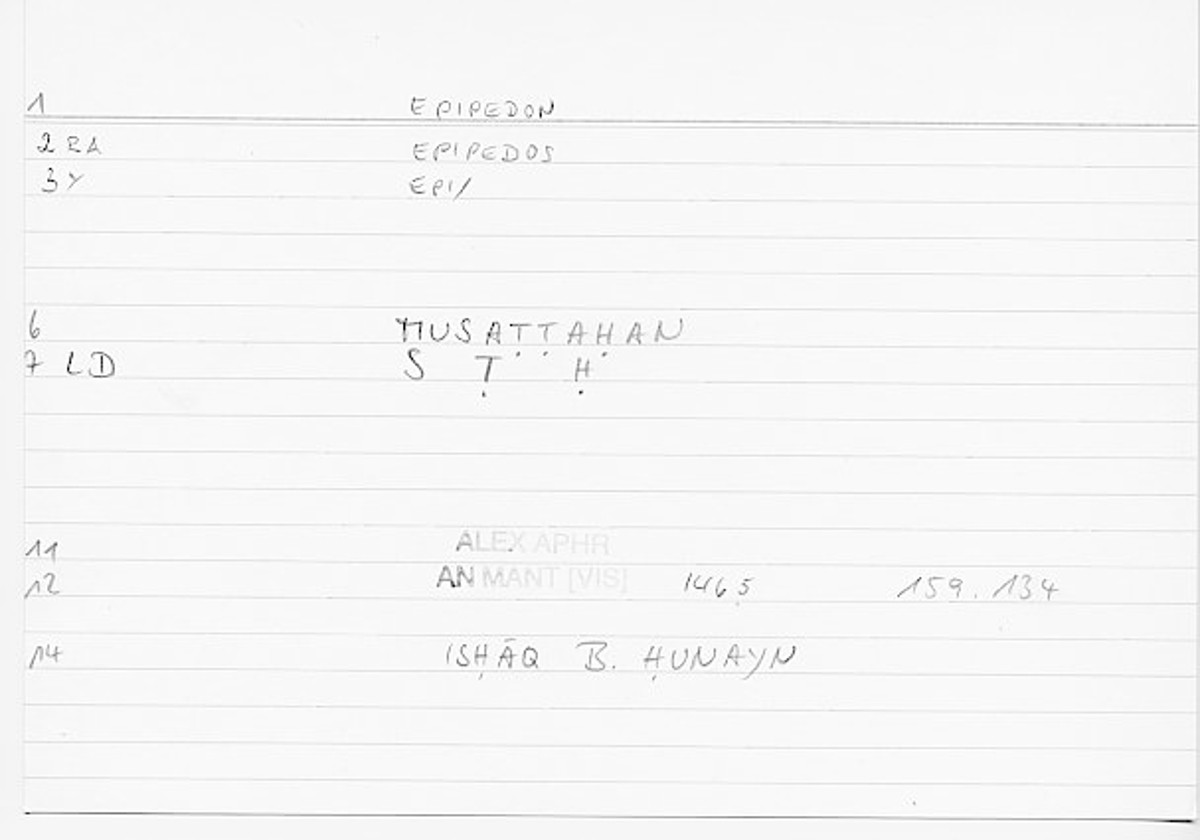 1 EPIPEDON
2 RA EPIPEDOS
3 Y EPI/
6 MUSAṬṬAḤAN
7 LD S Ṭ Ḥ
11 ALEX APHR
12 AN MANT [VIS] 146,5 159.134
14 ISḤĀQ B. ḤUNAYN